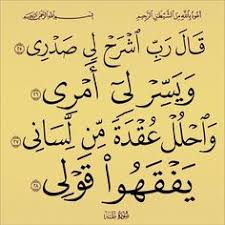 أعوذ بالله من الشيطن الرجيم
بسم الله الرحمن الرحيم
قَالَ رَبِّ ٱشۡرَحۡ لِي صَدۡرِي ٢٥
وَيَسِّرۡ لِيٓ أَمۡرِي ٢٦
وَٱحۡلُلۡ عُقۡدَةٗ مِّن لِّسَانِي ٢٧
يَفۡقَهُواْ قَوۡلِي ٢٨
سورة طه